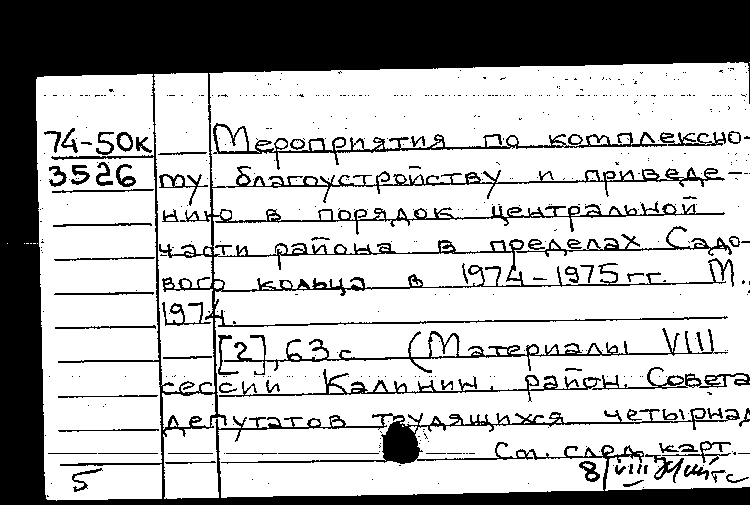 74-50к Мероприятия по комплексно-
3526 му благоустройству и приведе-
нию в порядок центральной
части района в пределах Садо-
вого кольца в 1974-1975 гг. М.,
1974.
[2], 63 с (Материалы VIII
сессии Калинин. район. Совета
депутатов трудящихся четырнад
См. след. карт.
5 8/VIII